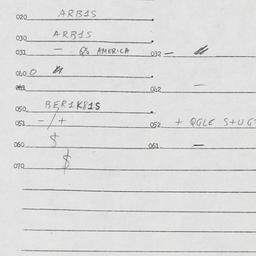 020 ARB1S
030 ARB1S
031 - AMERICA 032 -
040 0
042 -
050 BER1K81S
051 -/+ 052 + QGLE S+UG
060 $ 061 -
070 $